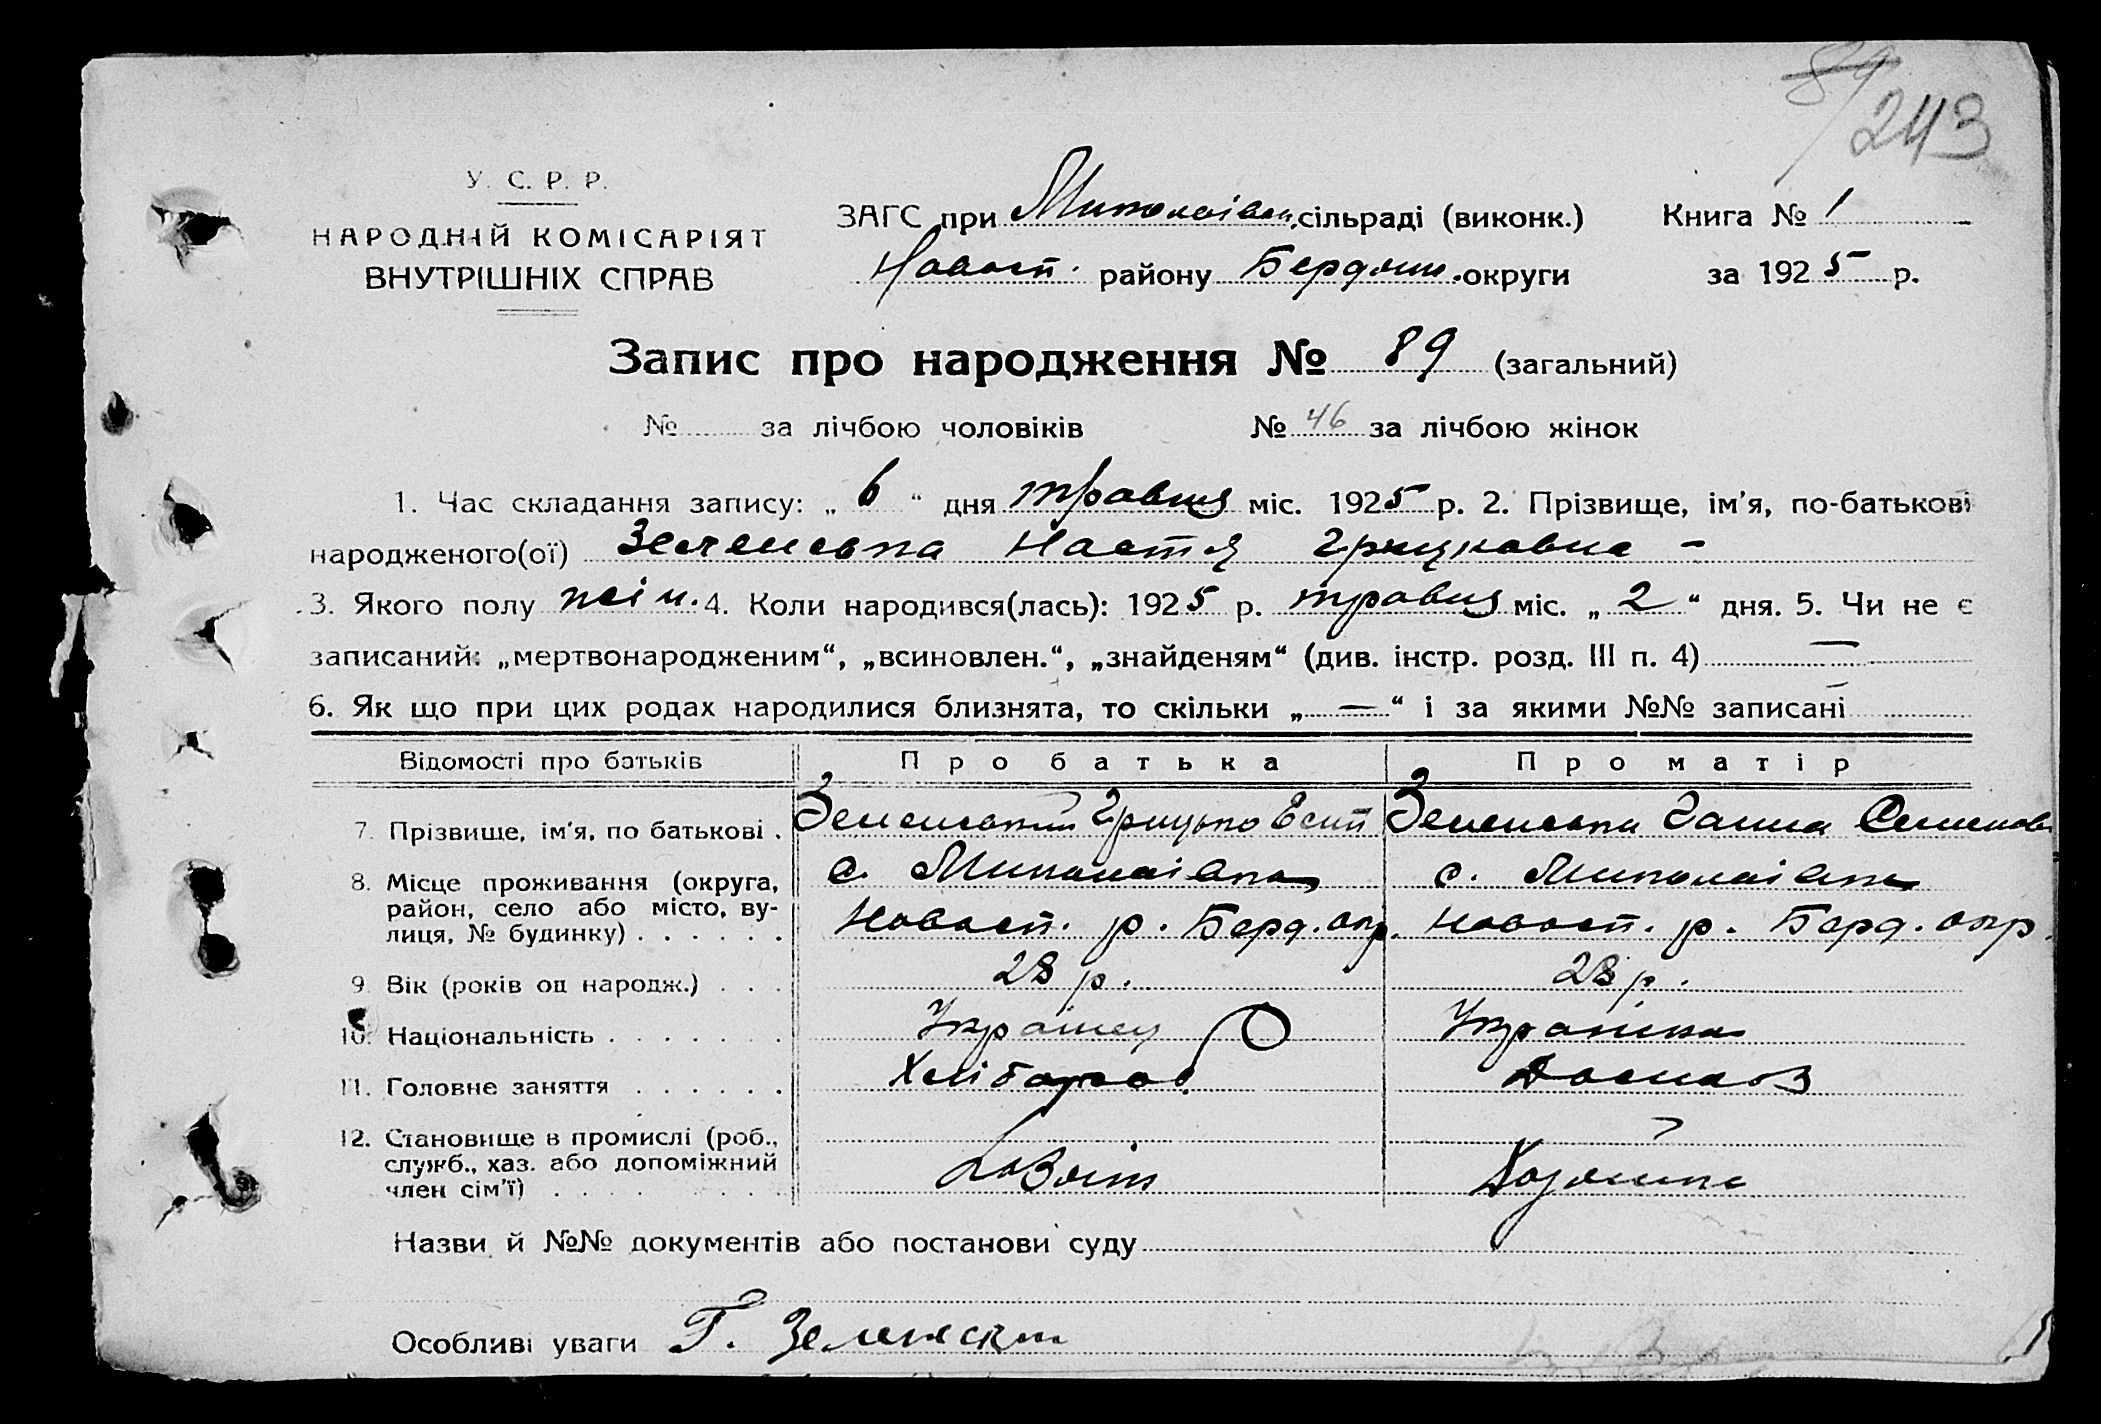 89
243
У. С. Р. Р.
НАРОДНІЙ КОМІСАРІЯТ
ВНУТРІШНІХ СПРАВ
ЗАГС при Миколаївськ. сільраді (виконк.) Книга № 1
Новосп. району Бердянс. округи за 1925 р.
Запис про народження № 89 (загальний)
№ за лічбою чоловіків № 46 за лічбою жінок
1. Час складання запису: „ 6 “ дня травня міс. 1925 р. 2. Прізвище, ім'я, по-батькові
народженого(ої) Зеленська Настя Грицковна -
3. Якого полу жін. 4. Коли народився(лась): 1925 р. травня міс. „ 2 “ дня. 5. Чи не є
записаний: „мертвонародженим“, „всиновлен.“, „знайденям“ (див. інстр. розд. III п. 4) —
6. Як що при цих родах народилися близнята, то скільки „ — “ і за якими №№ записані —
Відомості про батьків Про батька Про матір
7. Прізвище, ім'я, по батькові . Зеленський Грицько Есип Зеленська Ганна Семенов
8. Місце проживання (округа, район, село або місто, вулиця, № будинку) . . . . . .
с. Миколаівка с. Миколаівка
Новосп. р. Берд. окр. Новосп. р. Берд. окр.
9. Вік (років од народж.) . . . 28 р. 28 р.
10. Національність . . . . . . . Украінец Украінка
11. Головне заняття . . . . . . Хлібороб
12. Становище в промислі (роб., служб., хаз. або допоміжний член сім'ї) . . . . . . . . .
Хазяін Хазяйка
Назви й №№ документів або постанови суду
Особливі уваги Г. Зеленский